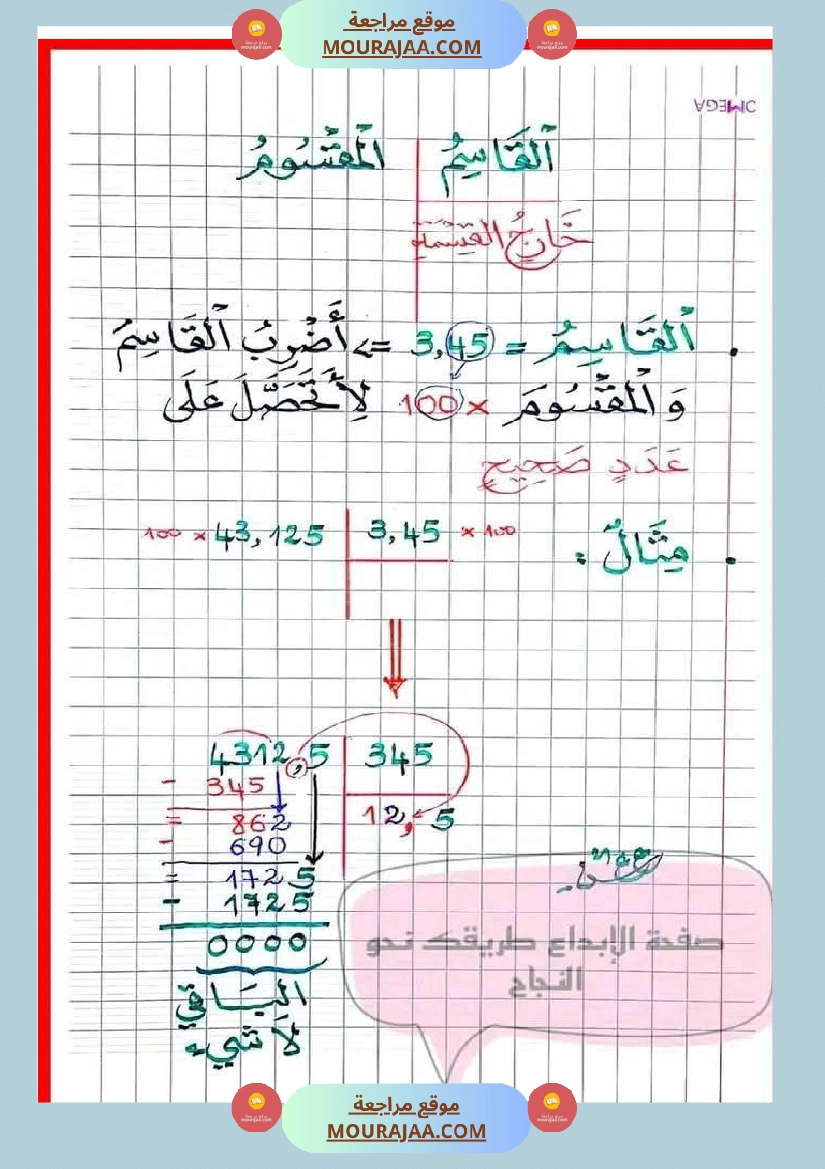 موقع مراجعة
MOURAJAA.COM
OMEGA
المَقْسُومُ | القَاسِمُ
خَارِجُ القِسْمَةِ
. القَاسِمُ = 3,45 => أَضْرِبُ القَاسِمَ
وَ المَقْسُومَ × 100 لِأَتَحَصَّلَ عَلَى
عَدَدٍ صَحِيحٍ
. مِثَالٌ :
100 × 43,125 | 3,45 × 100
4312,5 | 345
- 345
= 862 | 12,5
- 690
= 1725
- 1725
0000
صفحة الإبداع طريقك نحو
النجاح
البَاقِي
لَا شَيء
موقع مراجعة
MOURAJAA.COM